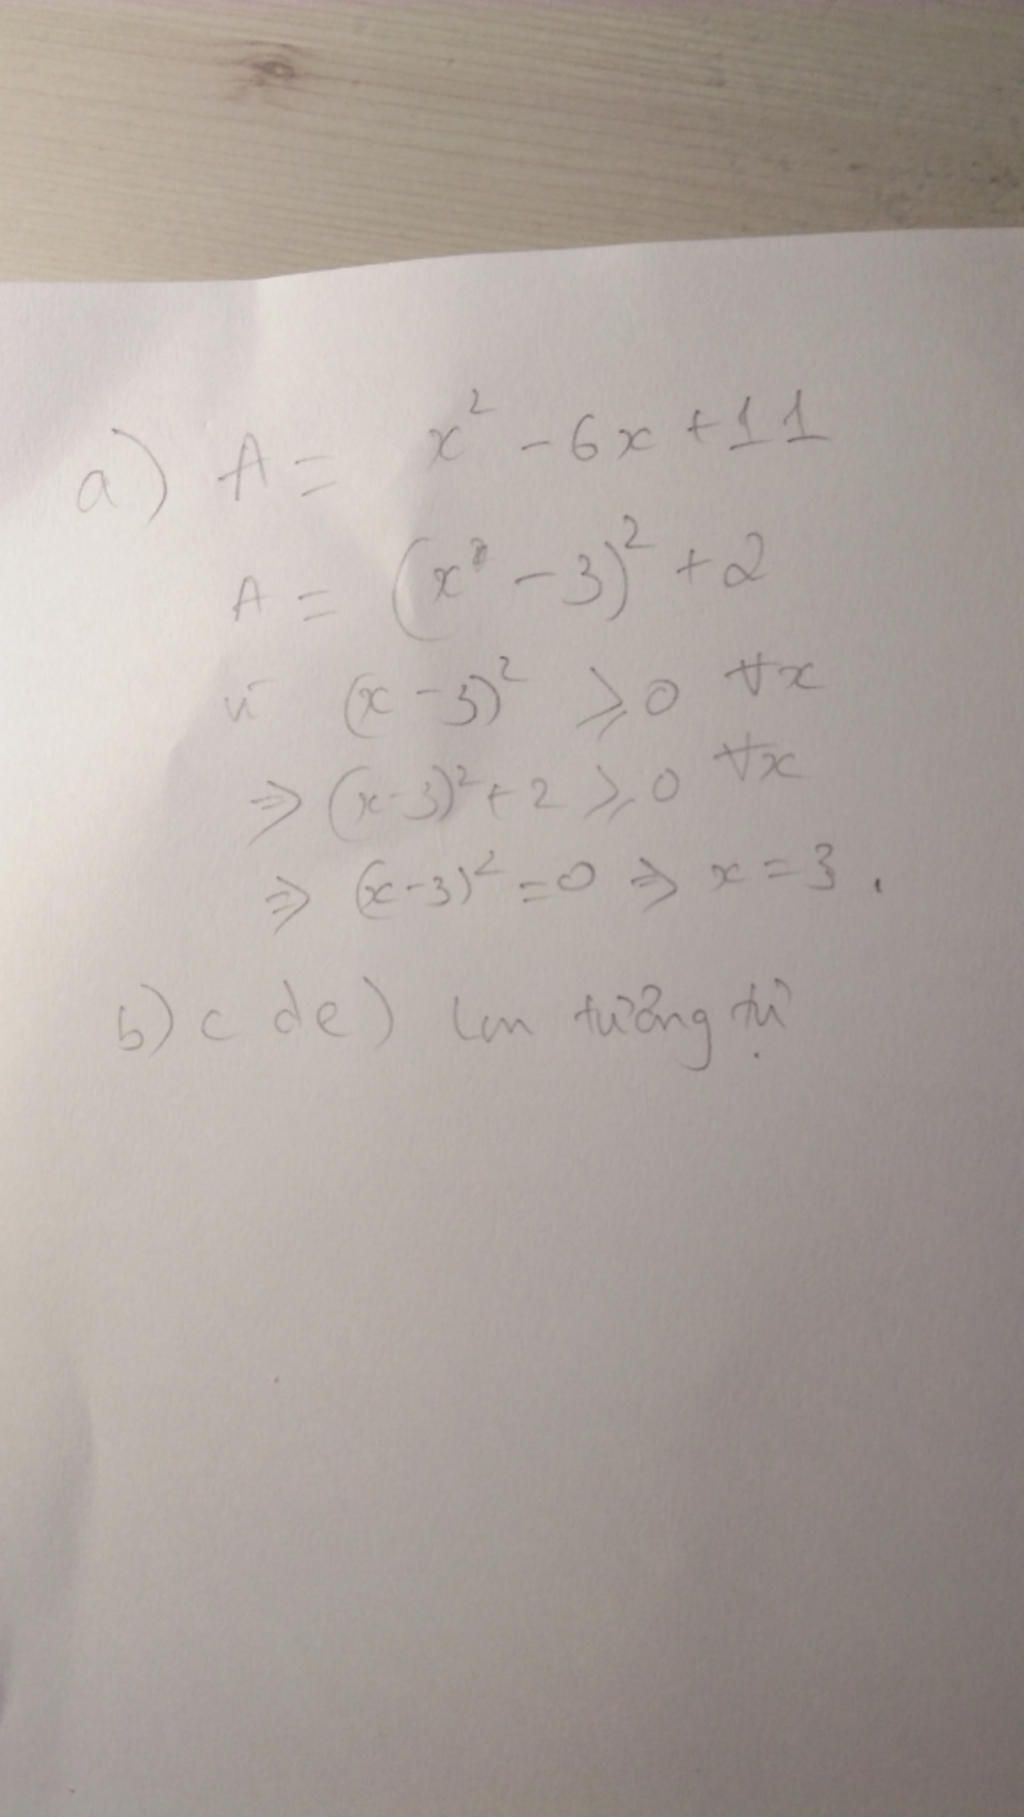 a) A = x² - 6x + 11
A = (x - 3)² + 2
vì (x - 3)² ⩾ 0 ∀x
⇒ (x - 3)² + 2 ⩾ 0 ∀x
⇒ (x - 3)² = 0 ⇒ x = 3 .
b) c d e) tưởng tự